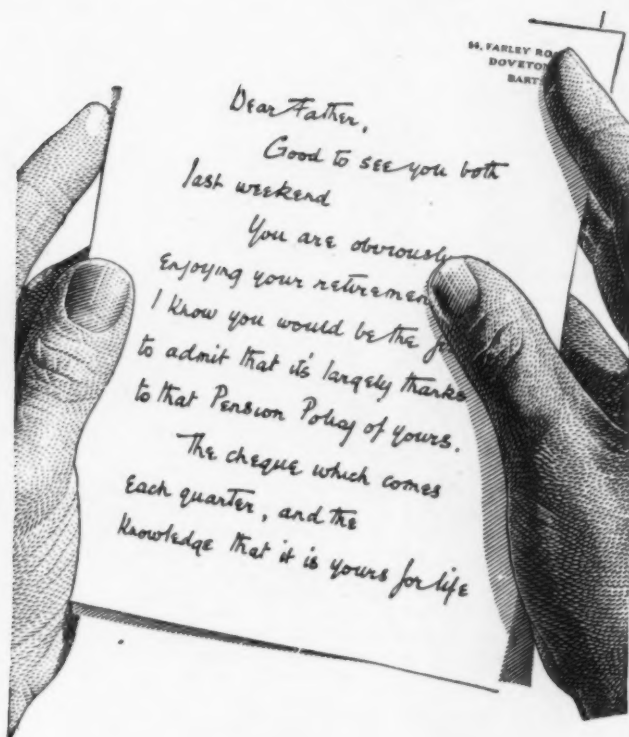 84, FARLEY RO
DOVETON
BARTS
Dear Father,
Good to see you both
last weekend
You are obviously
enjoying your retiremen
I know you would be the
to admit that it's largely thanks
to that Pension Policy of yours.
The cheque which comes
each quarter, and the
knowledge that it is yours for life